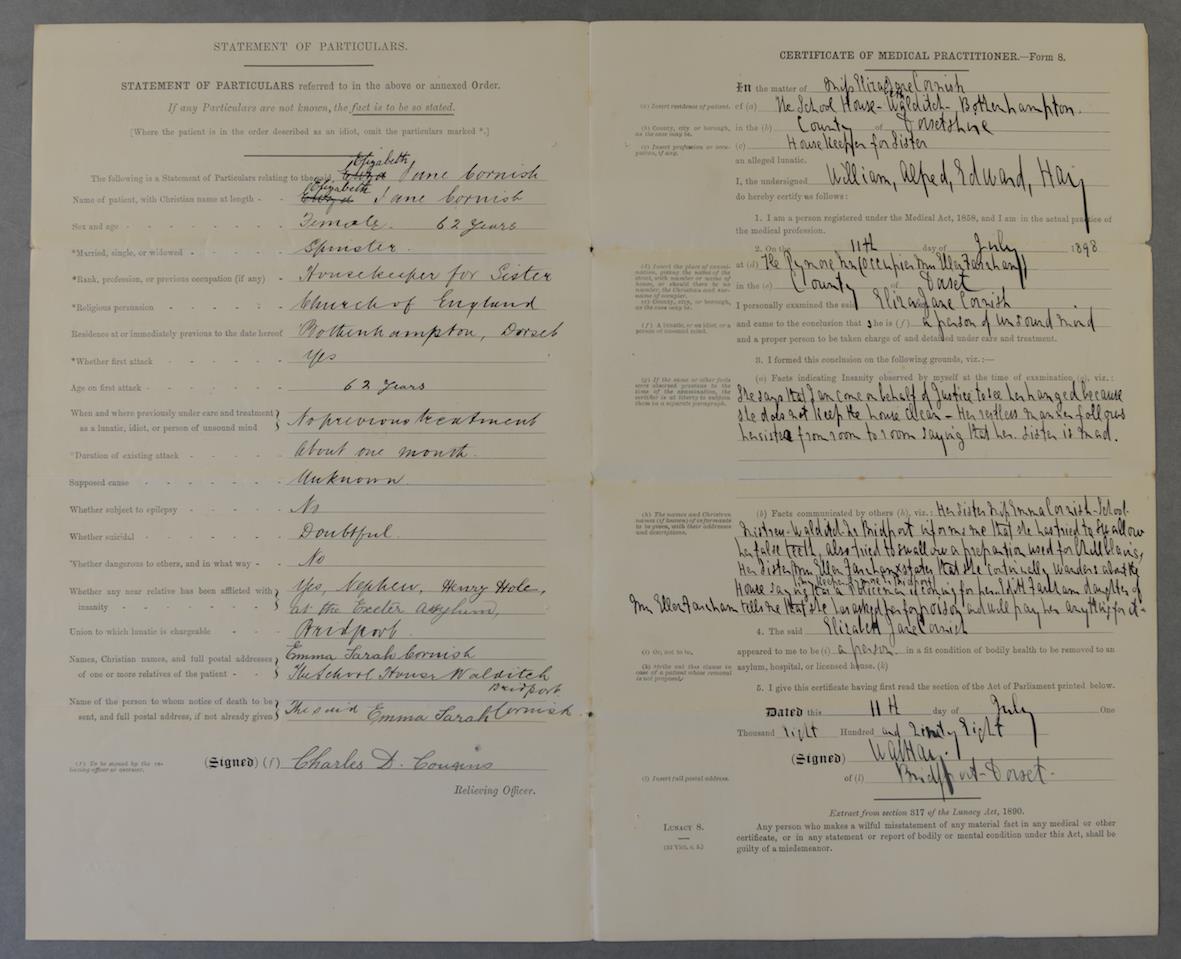 STATEMENT OF PARTICULARS.
STATEMENT OF PARTICULARS referred to in the above or annexed Order.
If any Particulars are not known, the fact is to be so stated.
[Where the patient is in the order described as an idiot, omit the particulars marked *.]
Elizabeth
The following is a Statement of Particulars relating to the said Eliza Jane Cornish
Elizabeth
Name of patient, with Christian name at length - - Eliza Jane Cornish
Sex and age - - - - - - - Female. 62 Years
*Married, single, or widowed - - - - - Spinster.
*Rank, profession, or previous occupation (if any) - Housekeeper for Sister
*Religious persuasion - - - - - Church of England
Residence at or immediately previous to the date hereof Bothenhampton, Dorset
*Whether first attack - - - - - Yes
Age on first attack - - - - - - 62 Years
When and where previously under care and treatment
as a lunatic, idiot, or person of unsound mind No previous treatment
*Duration of existing attack - - - - - About one month.
Supposed cause - - - - - - Unknown.
Whether subject to epilepsy - - - - - No
Whether suicidal - - - - - - Doubtful.
Whether dangerous to others, and in what way - - No
Whether any near relative has been afflicted with Yes, Nephew, Henry Hole,
insanity - - - - - - - at the Exeter Asylum,
Union to which lunatic is chargeable - - - Bridport.
Names, Christian names, and full postal addresses Emma Sarah Cornish
of one or more relatives of the patient - - The School House Walditch
Bridport
Name of the person to whom notice of death to be
sent, and full postal address, if not already given The said Emma Sarah Cornish.
(f) To be signed by the relieving officer or overseer.
(Signed) (f) Charles D. Cousins
Relieving Officer.
CERTIFICATE OF MEDICAL PRACTITIONER.—Form 8.
In the matter of Miss Eliza Jane Cornish
(a) Insert residence of patient. of (a) The School House - Walditch - Bothenhampton.
(b) County, city or borough, as the case may be. in the (b) County of Dorsetshire
(c) Insert profession or occupation, if any. (c) Housekeeper for Sister
an alleged lunatic.
I, the undersigned William, Alfred, Edward, Hay
do hereby certify as follows:
1. I am a person registered under the Medical Act, 1858, and I am in the actual practice of
the medical profession.
2. On the 11th day of July 1898
(d) Insert the place of examination, giving the name of the street, with number or name of house, or should there be no number, the Christian and surname of occupier.
at (d) The Rymore Inn (occupier Mrs Ellen Fareham)
(e) County, city, or borough, as the case may be.
in the (e) County of Dorset
I personally examined the said Eliza Jane Cornish
(f) A lunatic, or an idiot, or a person of unsound mind.
and came to the conclusion that she is (f) a person of unsound mind
and a proper person to be taken charge of and detained under care and treatment.
3. I formed this conclusion on the following grounds, viz.:—
(g) If the same or other facts were observed previous to the time of the examination, the certifier is at liberty to subjoin them in a separate paragraph.
(a) Facts indicating Insanity observed by myself at the time of examination (g), viz.:
She says that I am come on behalf of Justice to see her hanged because
she does not keep the house clean - Her restless manner follows
her sister from room to room saying that her sister is mad.
(h) The names and Christian names (if known) of informants to be given, with their addresses and descriptions.
(b) Facts communicated by others (h), viz.: Her Sister Miss Emma Cornish - School
Mistress - Walditch Nr Bridport informs me that she has tried to swallow
her false teeth, also tried to swallow a preparation used for chilblains,
Her Sister Mrs Ellen Fareham states that she continually wanders about the
House saying that a Policeman is coming for her. Edith Fareham daughter of
Mrs Ellen Fareham tells me that she has asked her for poison and will pay her anything for it -
4. The said Elizabeth Jane Cornish
(i) Or, not to be, appeared to me to be (i) a person in a fit condition of bodily health to be removed to an
(k) Strike out this clause in case of a patient whose removal is not proposed.
asylum, hospital, or licensed house. (k)
5. I give this certificate having first read the section of the Act of Parliament printed below.
Dated this 11th day of July One
Thousand Eight Hundred and Ninety Eight
(Signed) WAE Hay.
(l) Insert full postal address. of (l) Bridport - Dorset -
Extract from section 317 of the Lunacy Act, 1890.
LUNACY 8.
(53 Vict. c. 5.)
Any person who makes a wilful misstatement of any material fact in any medical or other
certificate, or in any statement or report of bodily or mental condition under this Act, shall be
guilty of a misdemeanor.